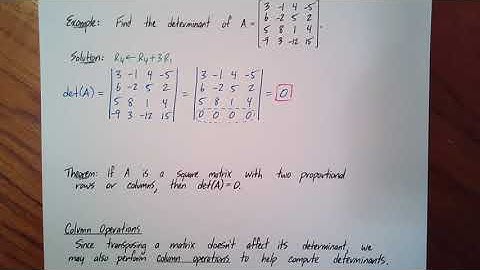 Example: Find the determinant of A = [3 -1 4 -5
6 -2 5 2
5 8 1 4
-9 3 -12 15].
Solution: R₄ ← R₄+3R₁
det(A) = |3 -1 4 -5| = |3 -1 4 -5| = 0
|6 -2 5 2| |6 -2 5 2|
|5 8 1 4| |5 8 1 4|
|-9 3 -12 15| |0 0 0 0|
Theorem: If A is a square matrix with two proportional
rows or columns, then det(A)=0.
Column Operations
Since transposing a matrix doesn't affect its determinant, we
may also perform column operations to help compute determinants.